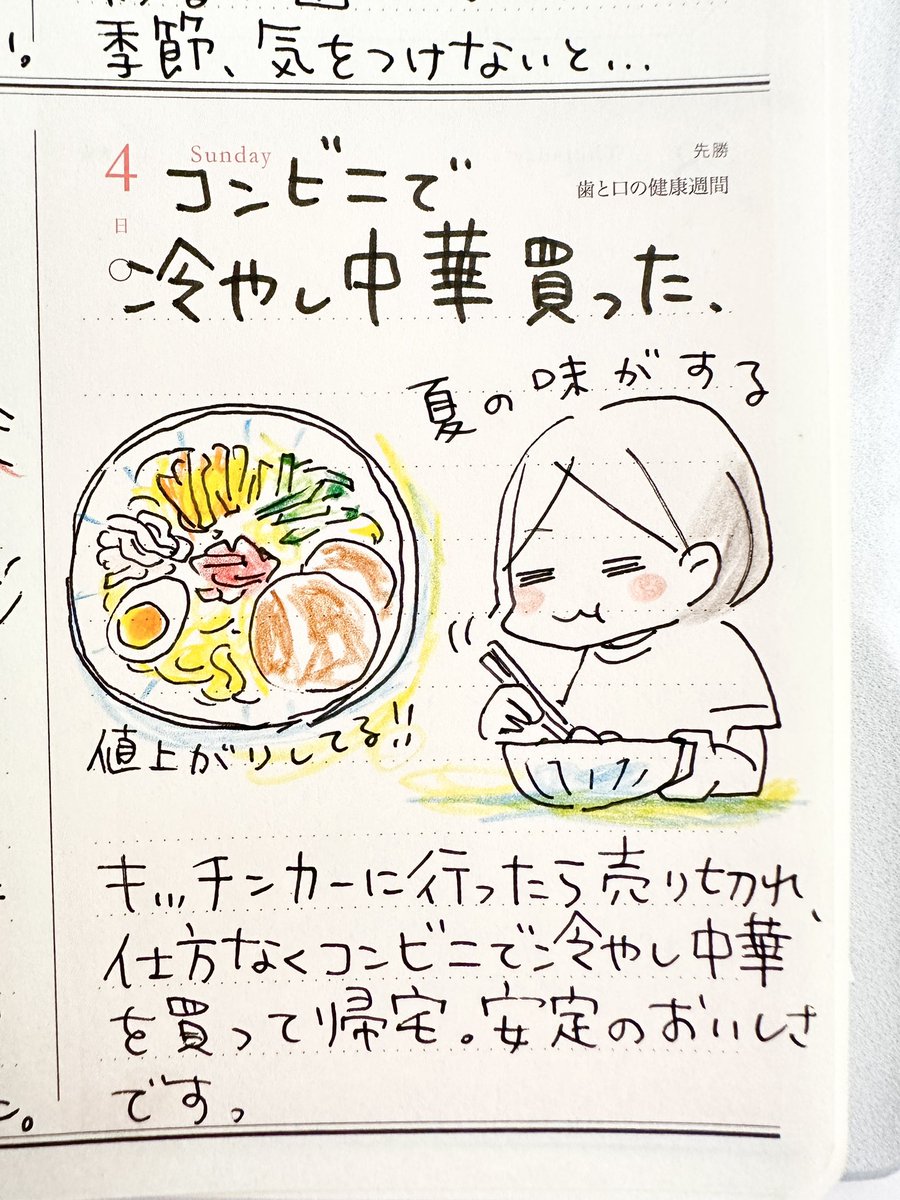 季節、気をつけないと…
4
Sunday
先勝
日
歯と口の健康週間
コンビニで
冷やし中華買った、
夏の味がする
値上がりしてる!!
キッチンカーに行ったら売り切れ、
仕方なくコンビニで冷やし中華
を買って帰宅。安定のおいしさ
です。